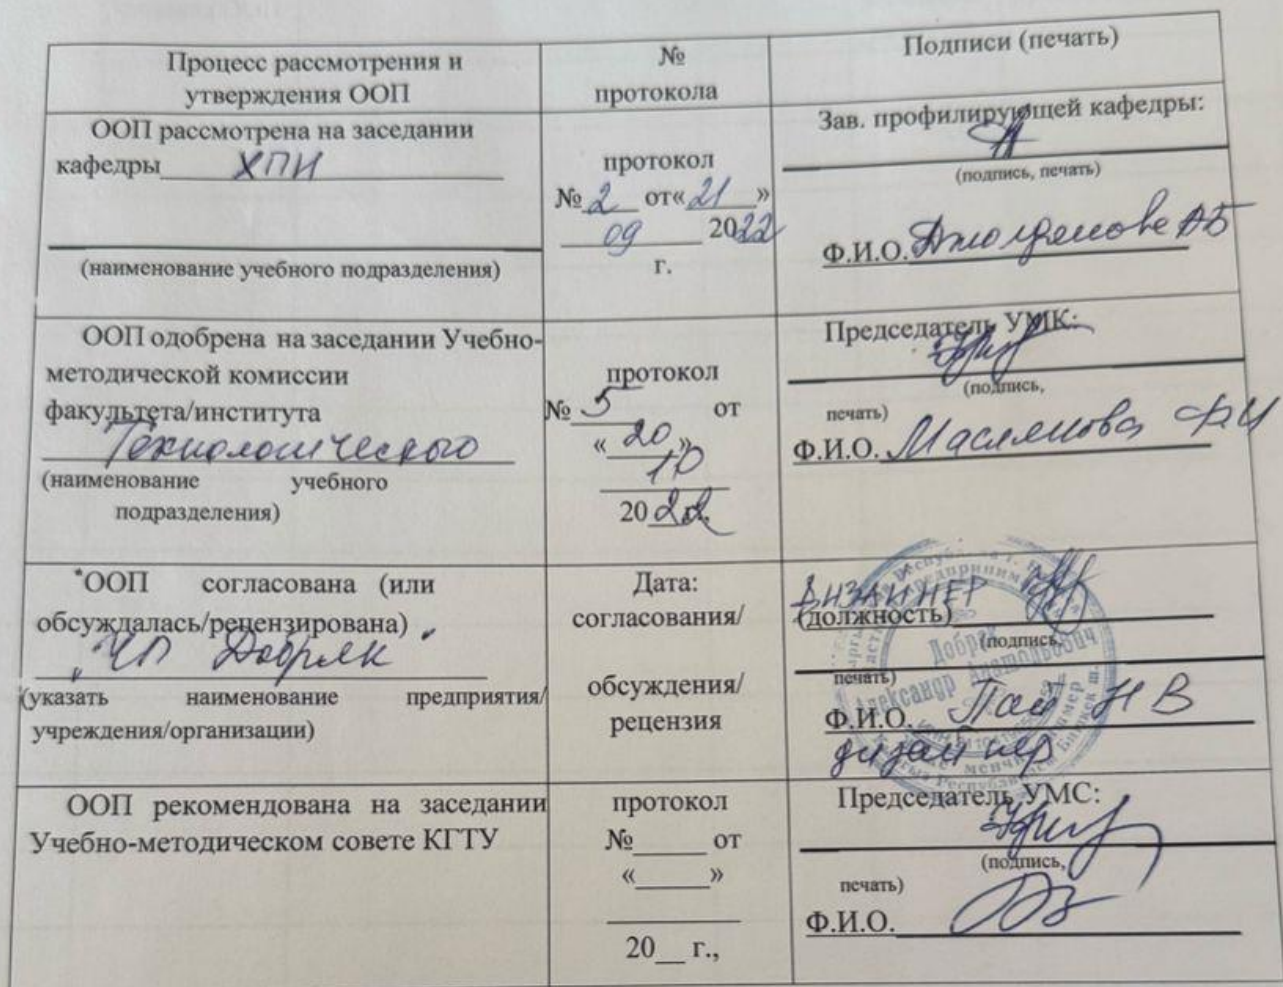 Процесс рассмотрения и
утверждения ООП
№
протокола
Подписи (печать)
ООП рассмотрена на заседании
кафедры ХПИ
(наименование учебного подразделения)
протокол
№ 2 от« 21 »
09 2022
г.
Зав. профилирующей кафедры:
(подпись, печать)
Ф.И.О. АБ
ООП одобрена на заседании Учебно-
методической комиссии
факультета/института
Технологического
(наименование учебного
подразделения)
протокол
№ 5 от
« 20 »
10
2022 г.
Председатель УМК:
(подпись,
печать)
Ф.И.О.
*ООП согласована (или
обсуждалась/рецензирована)
"ЧП Добряк"
(указать наименование предприятия/
учреждения/организации)
Дата:
согласования/
обсуждения/
рецензия
ДИЗАЙНЕР
(должность)
(подпись,
печать)
Ф.И.О. Пай Н В
дизайнер
Добряк
Александр Анатольевич
ООП рекомендована на заседании
Учебно-методическом совете КГТУ
протокол
№_____ от
«______»
20__ г.,
Председатель УМС:
(подпись,
печать)
Ф.И.О.